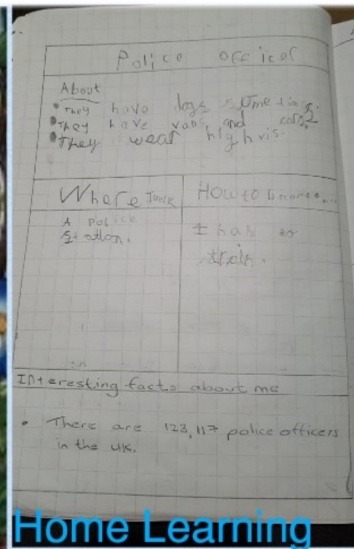 Police officer
About
• They have dogs sometimes
• They have vans, and cars
• They wear high vis
Where I work
How to become...
A Police
Station.
I had to
train.
Interesting facts about me
• There are 123,117 police officers
in the UK.
Home Learning